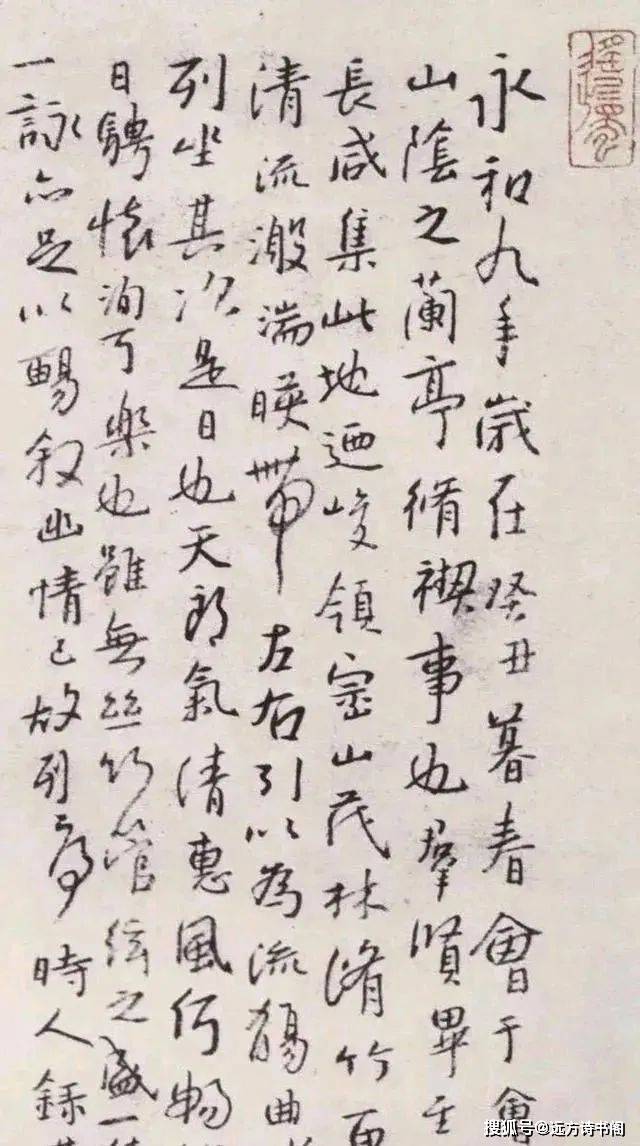 永和九年歲在癸丑暮春會于會
山陰之蘭亭脩禊事也羣賢畢至
長咸集此地迺峻領崇山茂林脩竹
清流激湍暎帶左右引以為流觴曲
列坐其次是日也天朗氣清惠風何暢
日騁懷洵可樂也雖無絲竹管絃之盛一
一詠亦足以暢叙幽情已故列序時人錄
搜狐号@远方诗书阁